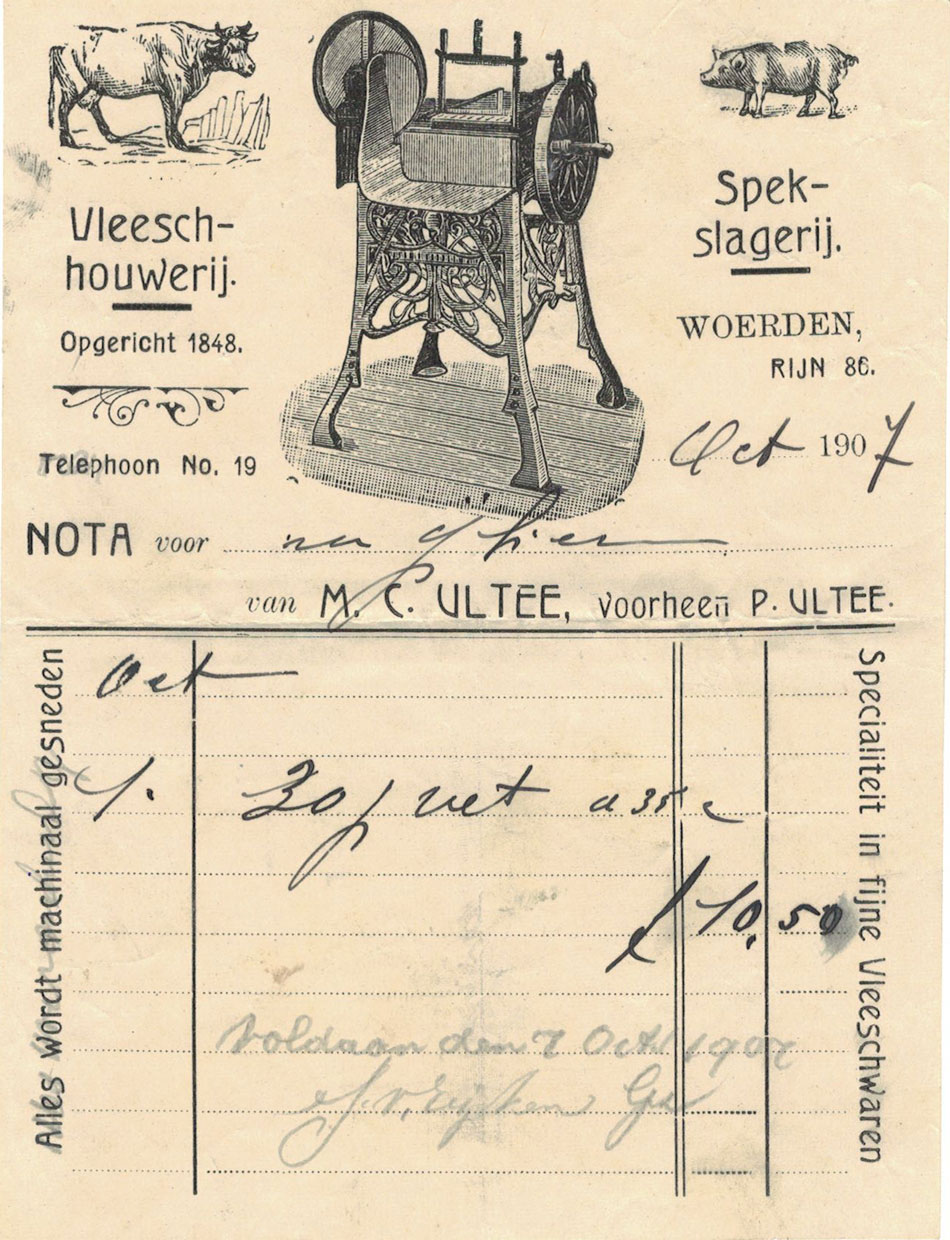 Vleesch-
houwerij.
Opgericht 1848.
Telephoon No. 19
Spek-
slagerij.
WOERDEN,
RIJN 86.
Oct 1907
NOTA voor
van M. C. ULTEE, voorheen P. ULTEE.
Alles wordt machinaal gesneden
Oct
1. 30 p vet a 35 c
f 10,50
Voldaan den 7 Oct 1907
Specialiteit in fijne Vleeschwaren